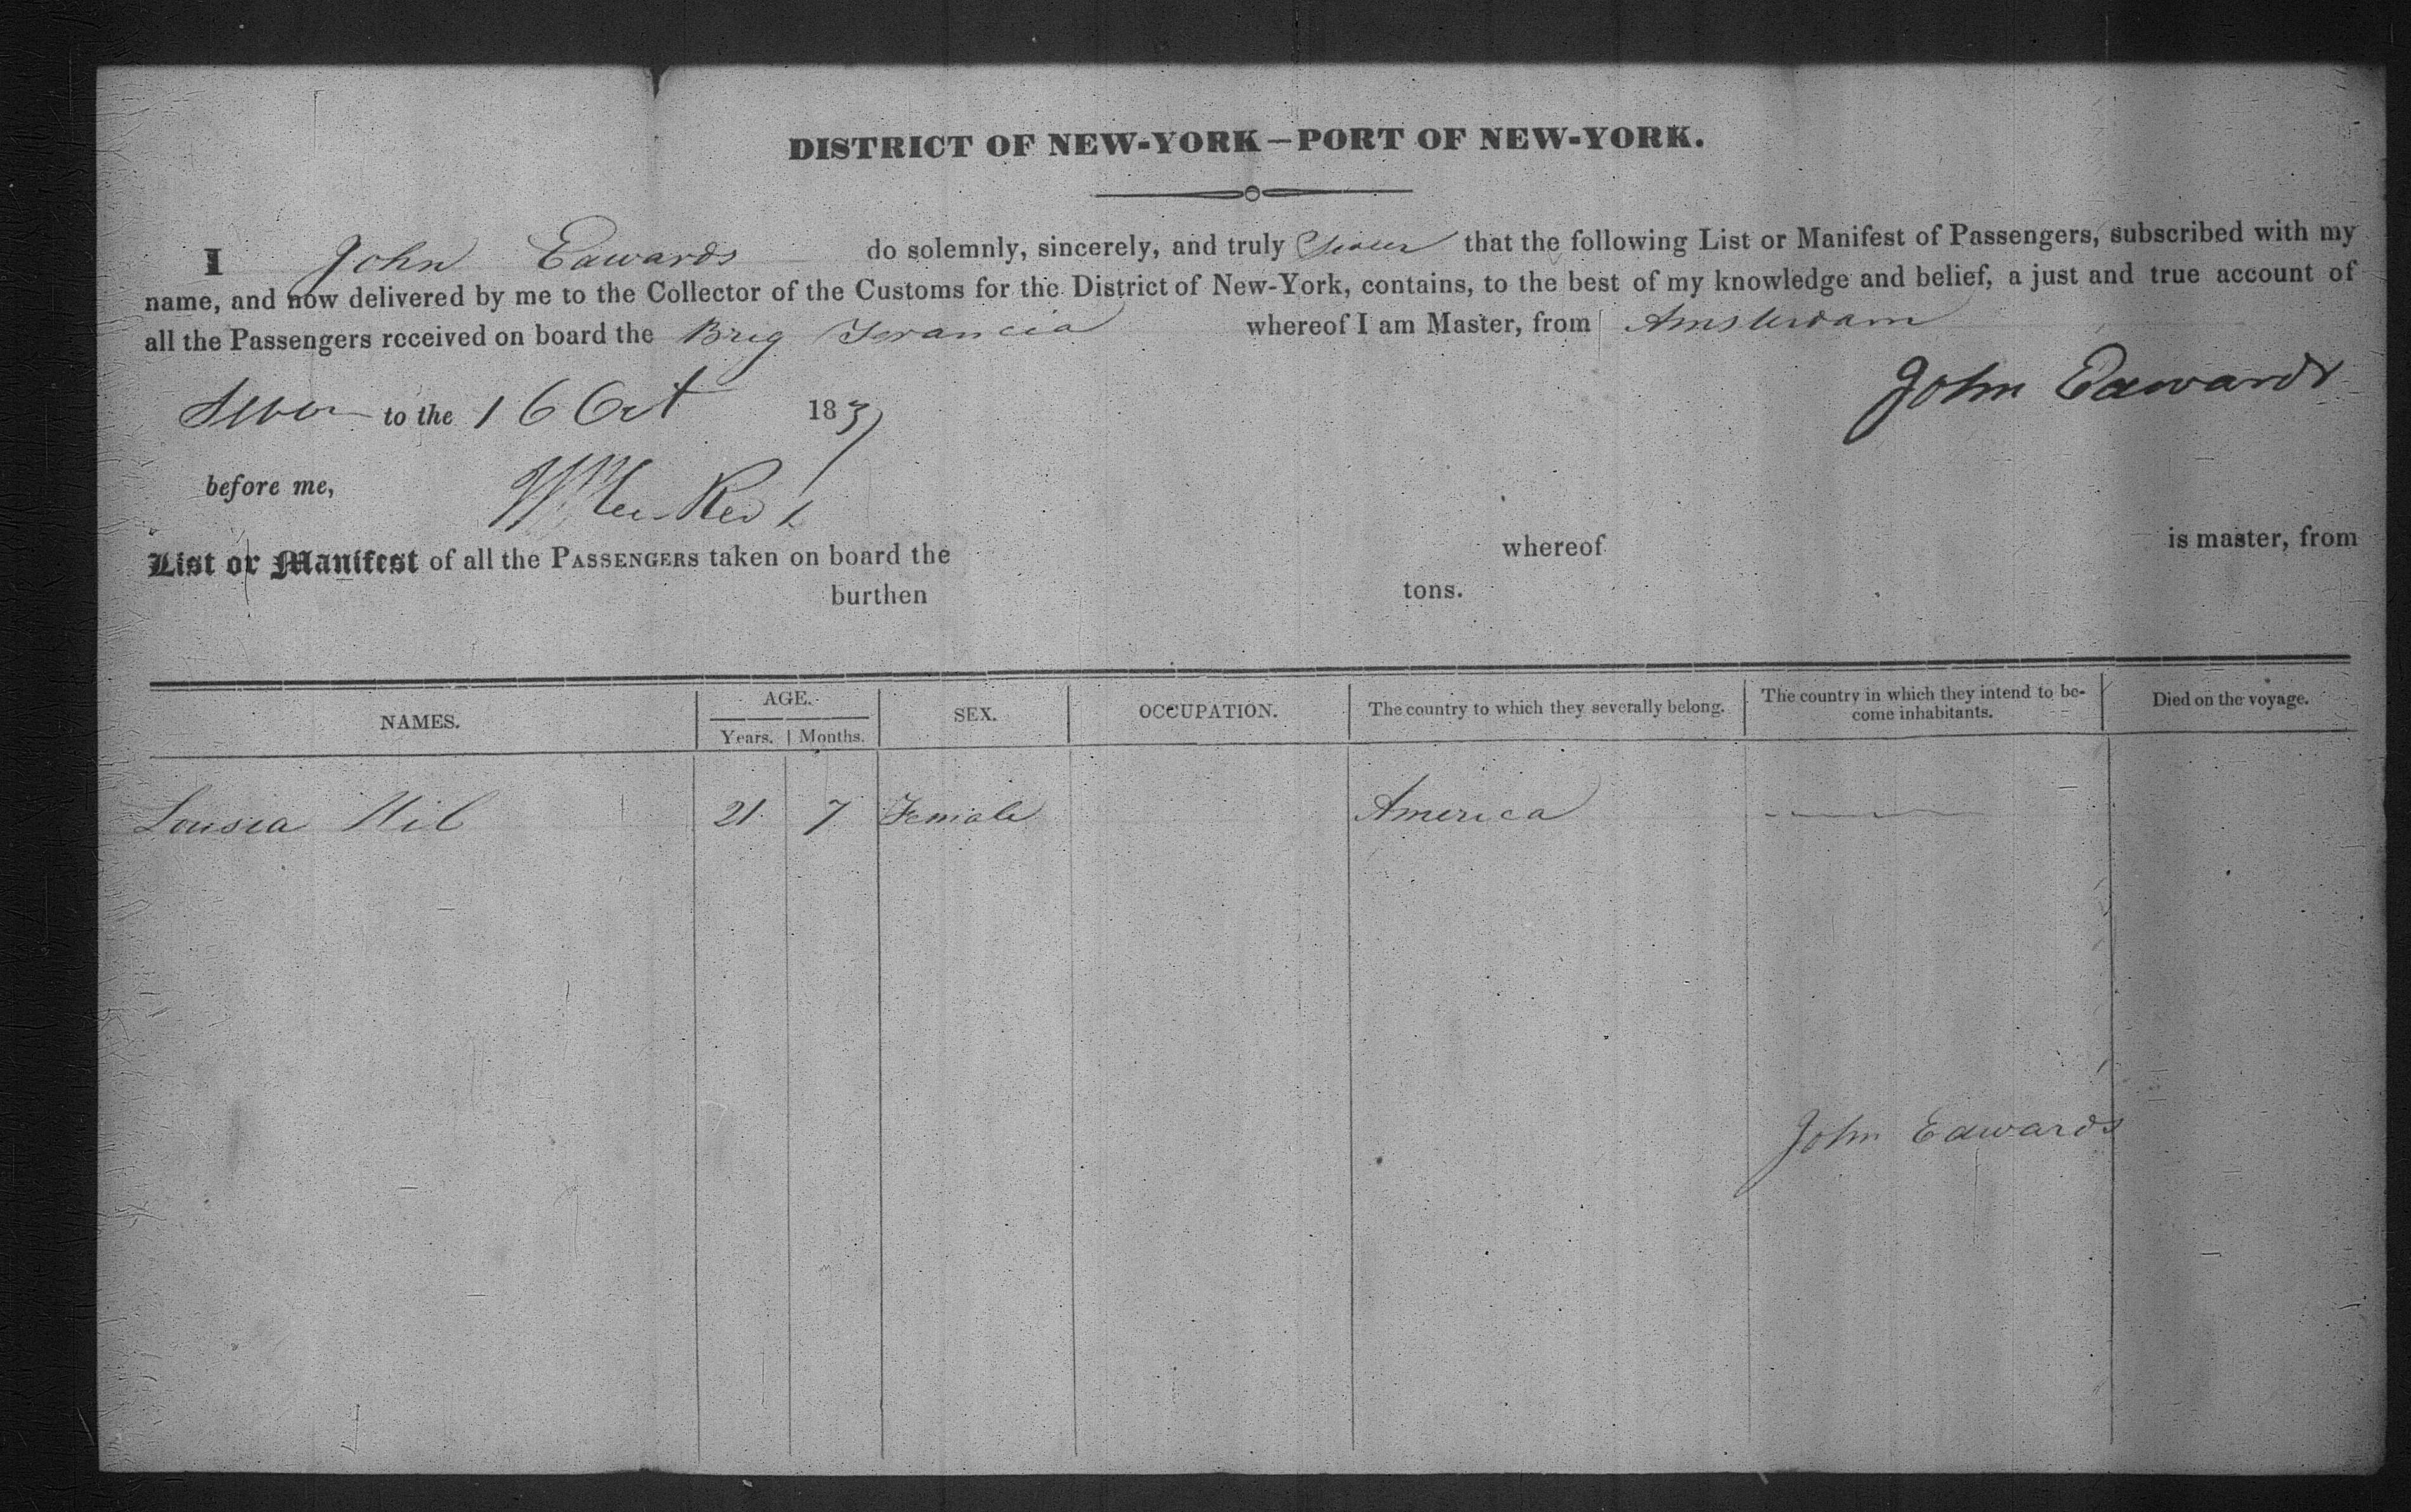 DISTRICT OF NEW-YORK—PORT OF NEW-YORK.
I John Edwards do solemnly, sincerely, and truly Swear that the following List or Manifest of Passengers, subscribed with my
name, and now delivered by me to the Collector of the Customs for the District of New-York, contains, to the best of my knowledge and belief, a just and true account of
all the Passengers received on board the Brig Francia whereof I am Master, from Amsterdam
John Edwards
to the 16 Oct 1837
before me,
List or Manifest of all the PASSENGERS taken on board the whereof is master, from
burthen tons.
NAMES. AGE. Years. Months. SEX. OCCUPATION. The country to which they severally belong. The country in which they intend to become inhabitants. Died on the voyage.
Lousia 21 7 Female America
John Edwards